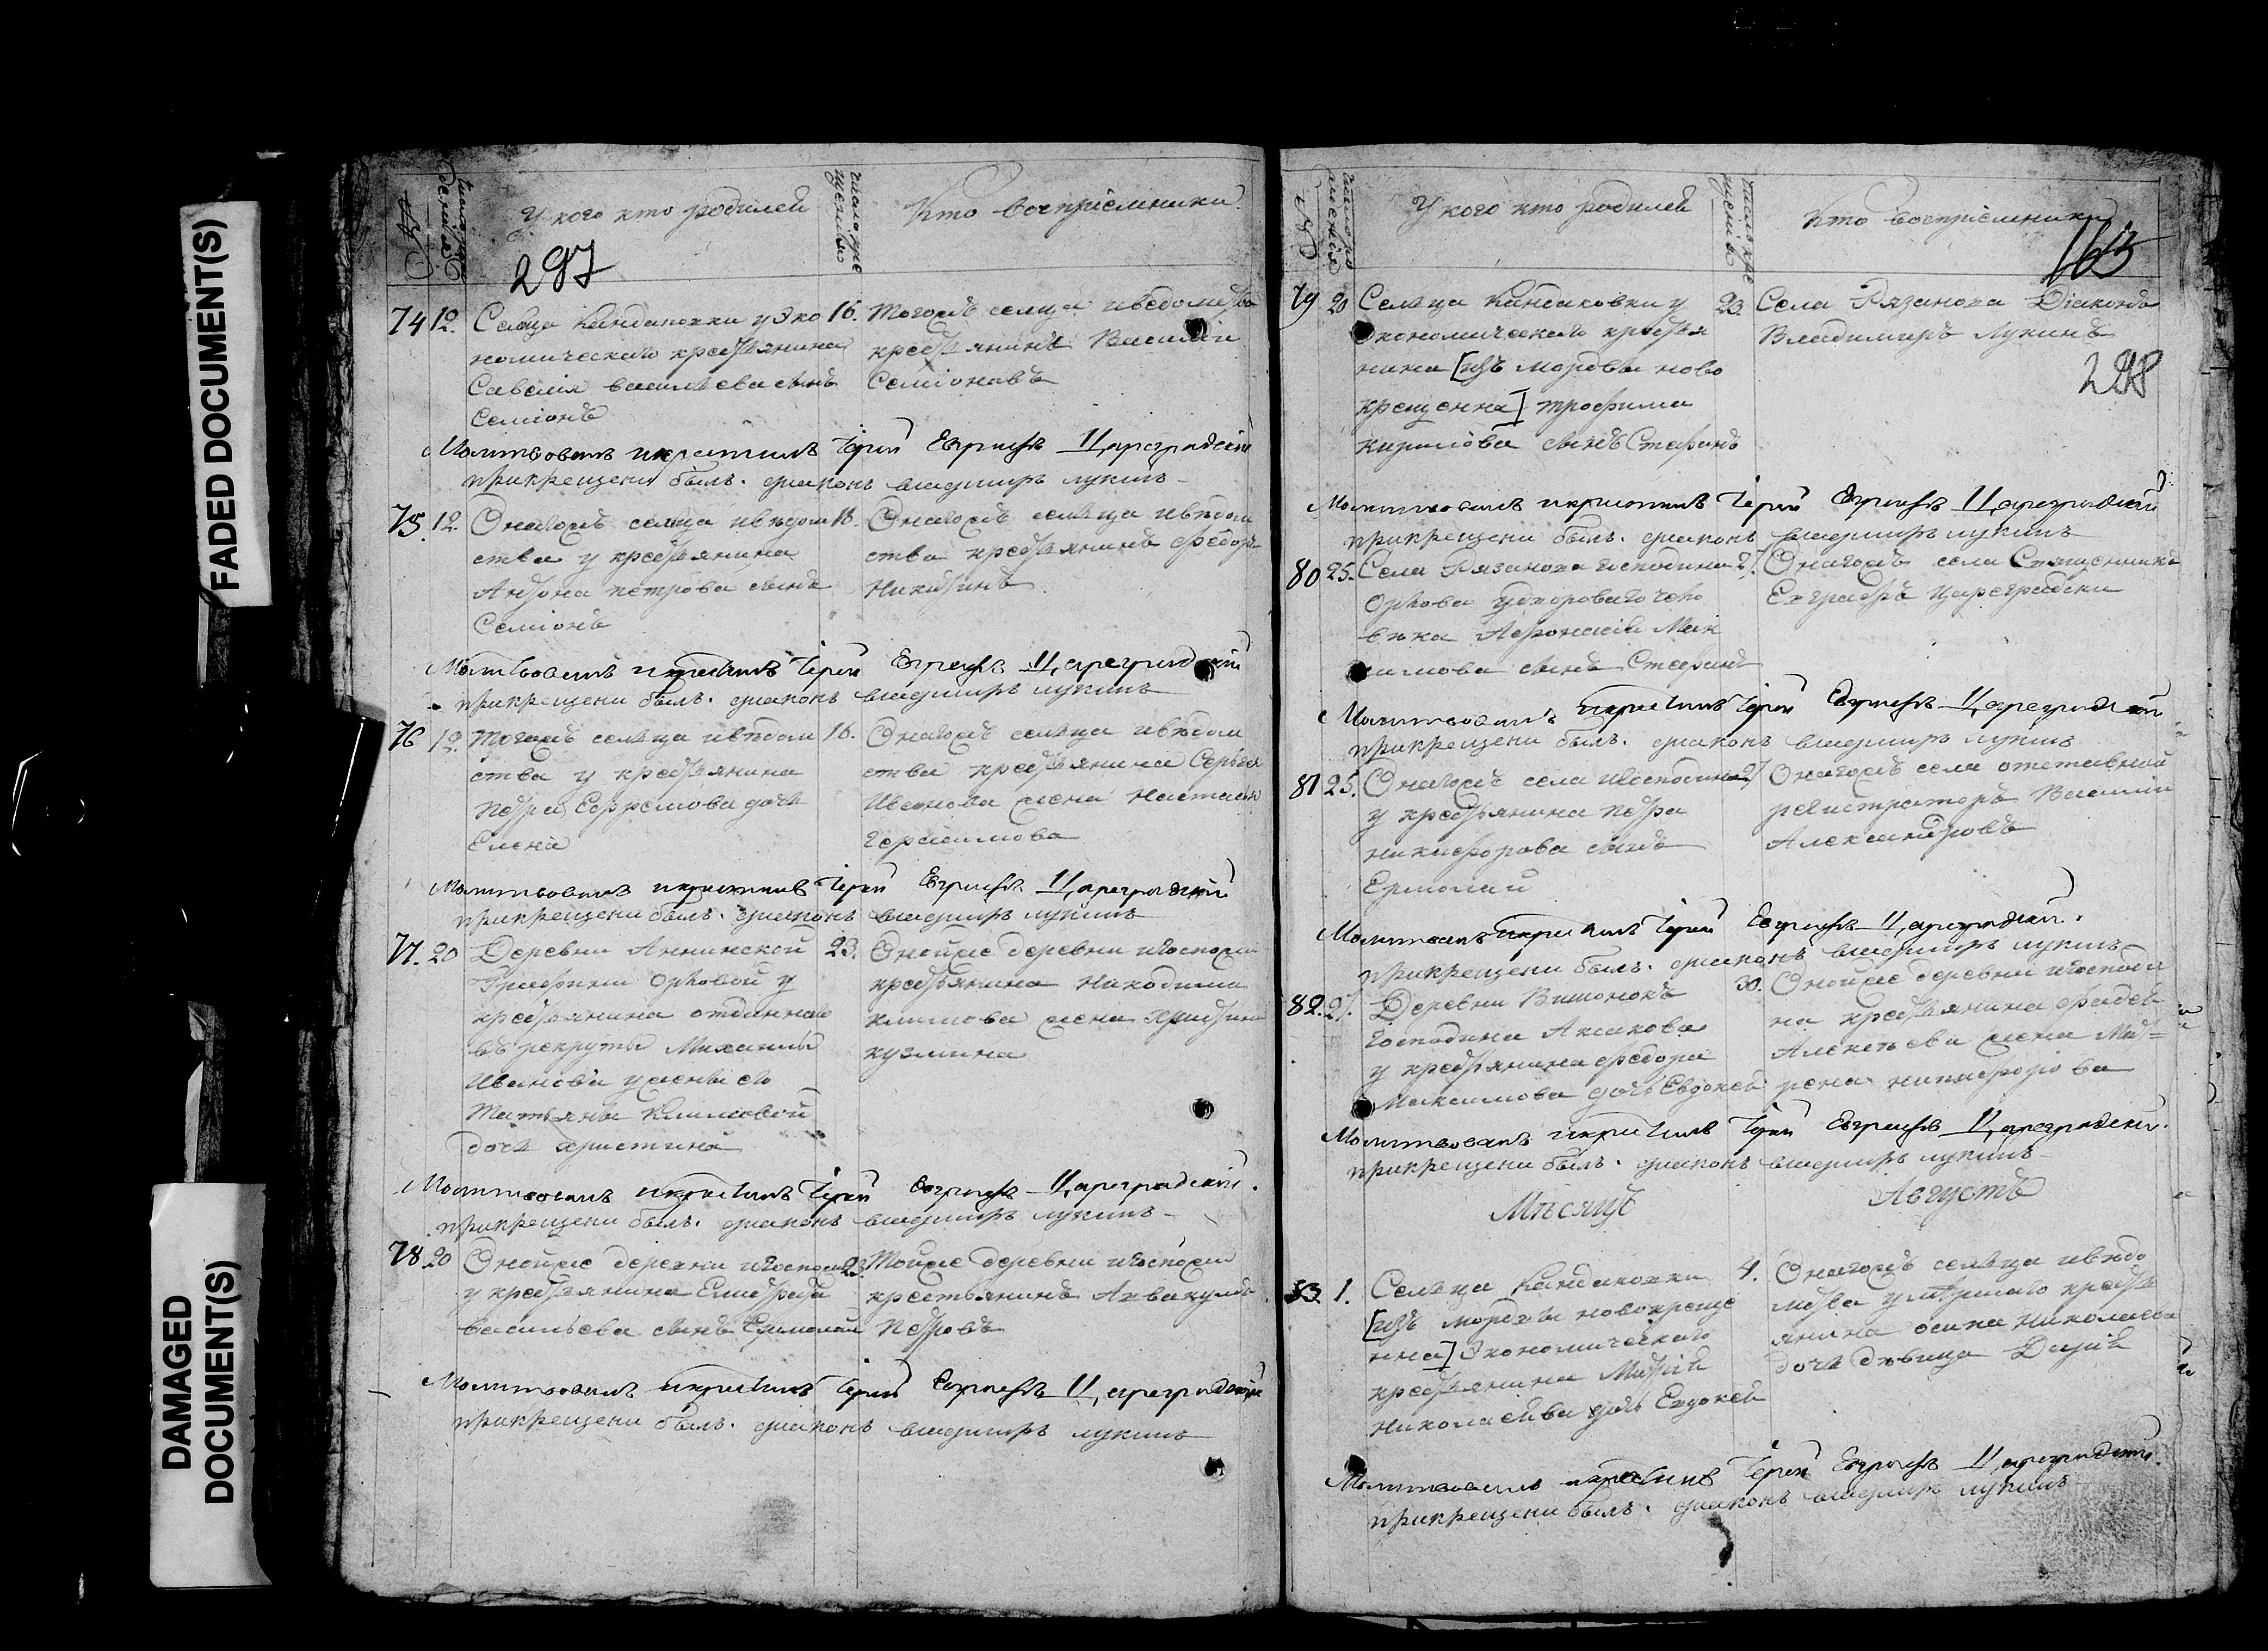 FADED DOCUMENT(S)
DAMAGED
DOCUMENT(S)
№
число рож
дения
У кого кто родилсѧ
число кре
щения
Кто восприемники
297
74 12. Селца Кандаковки у Эко
номическаго крестьянина
Савелия Васильева сынъ
Семионъ
16. Тогожъ селца и ведомства
крестьянинъ Василей
Семионовъ
Молитвовалъ и крестилъ Iерей Евграфъ Цареградский
при крещени былъ. диаконъ владимиръ лукинъ
75. 12 Онагожъ селца и ведом
ства у крестьянина
Антона петрова сынъ
Семионъ
16. Онагожъ селца и ведом
ства крестьянинъ Федоръ
Никитинъ
Молитвовалъ и крестилъ Iерей Евграфъ Цареградский
при крещени былъ. диаконъ владимиръ лукинъ
76 12. Тогожъ селца и ведом
ства у крестьянина
петра Ефремова дочь
Елена
16. Онагожъ селца и ведом
ства крестьянина Сергея
Иванова жена Настасья
Герасимова
Молитвовалъ и крестилъ Iерей Евграфъ Цареградский
при крещени былъ. диаконъ владимиръ лукинъ
77. 20 Деревни Аннинской
Графини Орловой у
крестьянина отданнаго
въ рекруты Михаила
Иванова у жены его
Татьяны Климовой
дочь христина
23. Онойже деревни и Госпожи
крестьянина Никодима
климова жена христина
кузмина
Молитвовалъ и крестилъ Iерей Евграфъ Цареградский.
при крещени былъ. диаконъ владимиръ лукинъ
78 20 Онойже деревни и Госпожи
у крестьянина Елистрата
Васильева сынъ Ермолай
23. Тойже деревни и Госпожи
крестьянинъ Аввакумъ
петровъ
Молитвовалъ и крестилъ Iерей Евграфъ Цареградский
при крещени былъ. диаконъ владимиръ лукинъ
№
число ро
ждения
У кого кто родилсѧ
число кре
щения
Кто восприемники
163
298
79 20 Селца Кандаковки у
Экономическаго крестья
нина [изъ мордвы ново
крещенна] трофима
кирилова сынъ Стефанъ
23. Села Рязанова Дiаконъ
Владимиръ Лукинъ
Молитвовалъ и крестилъ Iерей Евграфъ Цареградский
при крещени былъ. диаконъ владимиръ лукинъ
80 25. Села Рязанова господина
Орлова у дворового чело
века Афонасия Мак
симова сынъ Стефанъ
27. Онагожъ села Священникъ
Евграфъ Цареградски
Молитвовалъ и крестилъ Iерей Евграфъ Цареградский
при крещени былъ. диаконъ владимиръ лукинъ
81 25. Онагожъ села и господина
у крестьянина петра
никифорова сынъ
Ермолай
27 Онагожъ села отставной
регистраторъ Василий
Александровъ
Молитвовалъ и крестилъ Iерей Евграфъ Цареградский.
при крещени былъ. диаконъ владимиръ лукинъ
82. 27. Деревни Вишонокъ
Господина Аксакова
у крестьянина Федора
Максимова дочь Евдокея
30. Онойже деревни и Господи
на крестьянина Фадея
Алексеева жена Мат=
рена никифорова
Молитвовалъ и крестилъ Iерей Евграфъ Цареградский.
при крещени былъ. диаконъ владимиръ лукинъ
Месяцъ Августъ
83. 1. Селца Кандаковки
[изъ мордвы новокреще
нна] Экономическаго
крестьянина Матвея
Николаева дочь Евдокея
4. Онагожъ селца и ведо
мства умершаго кресть
янина осипа Николаева
дочь девица Дарья
Молитвовалъ и крестилъ Iерей Евграфъ Цареградский.
при крещени былъ. диаконъ владимиръ лукинъ